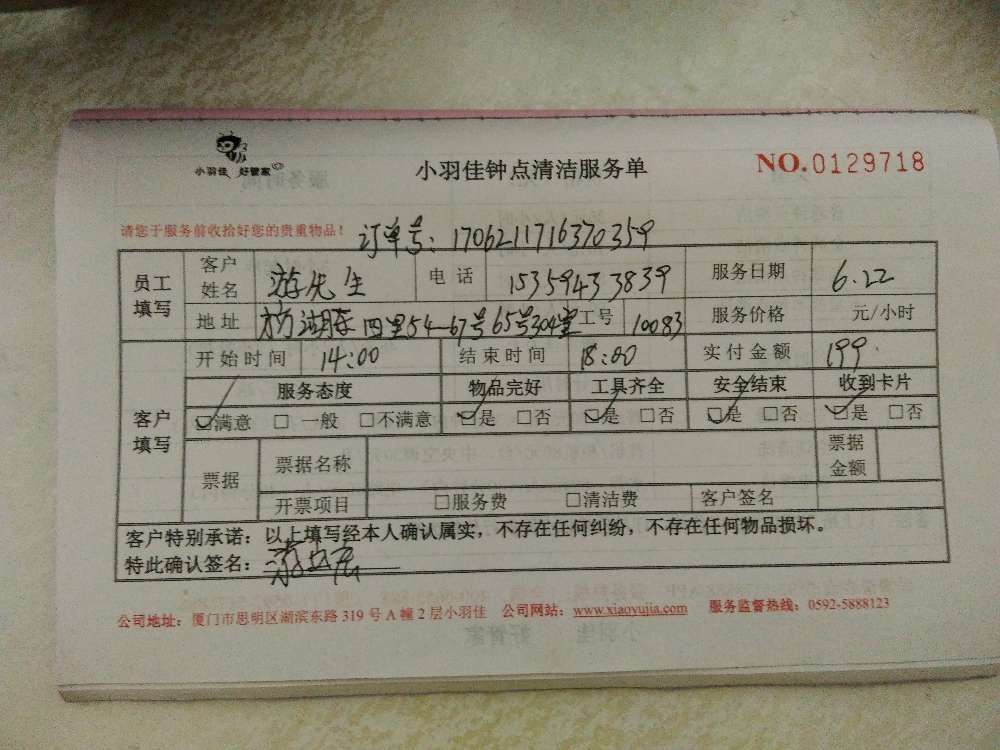 小羽佳 好管家
小羽佳钟点清洁服务单
NO.0129718
请您于服务前收拾好您的贵重物品!
订单号: 1706211716370359
员工填写 客户姓名 游先生 电话 15359433839 服务日期 6.22
地址 湖东四里54-67号65号304室 工号 10083 服务价格 元/小时
客户填写 开始时间 14:00 结束时间 18:00 实付金额 199
服务态度 物品完好 工具齐全 安全结束 收到卡片
☑满意 □一般 □不满意 ☑是 □否 ☑是 □否 ☑是 □否 ☑是 □否
票据 票据名称 票据金额
开票项目 □服务费 □清洁费 客户签名
客户特别承诺:以上填写经本人确认属实,不存在任何纠纷,不存在任何物品损坏。
特此确认签名:
公司地址:厦门市思明区湖滨东路 319 号 A 幢 2 层小羽佳 公司网站:www.xiaoyujia.com 服务监督热线:0592-5888123